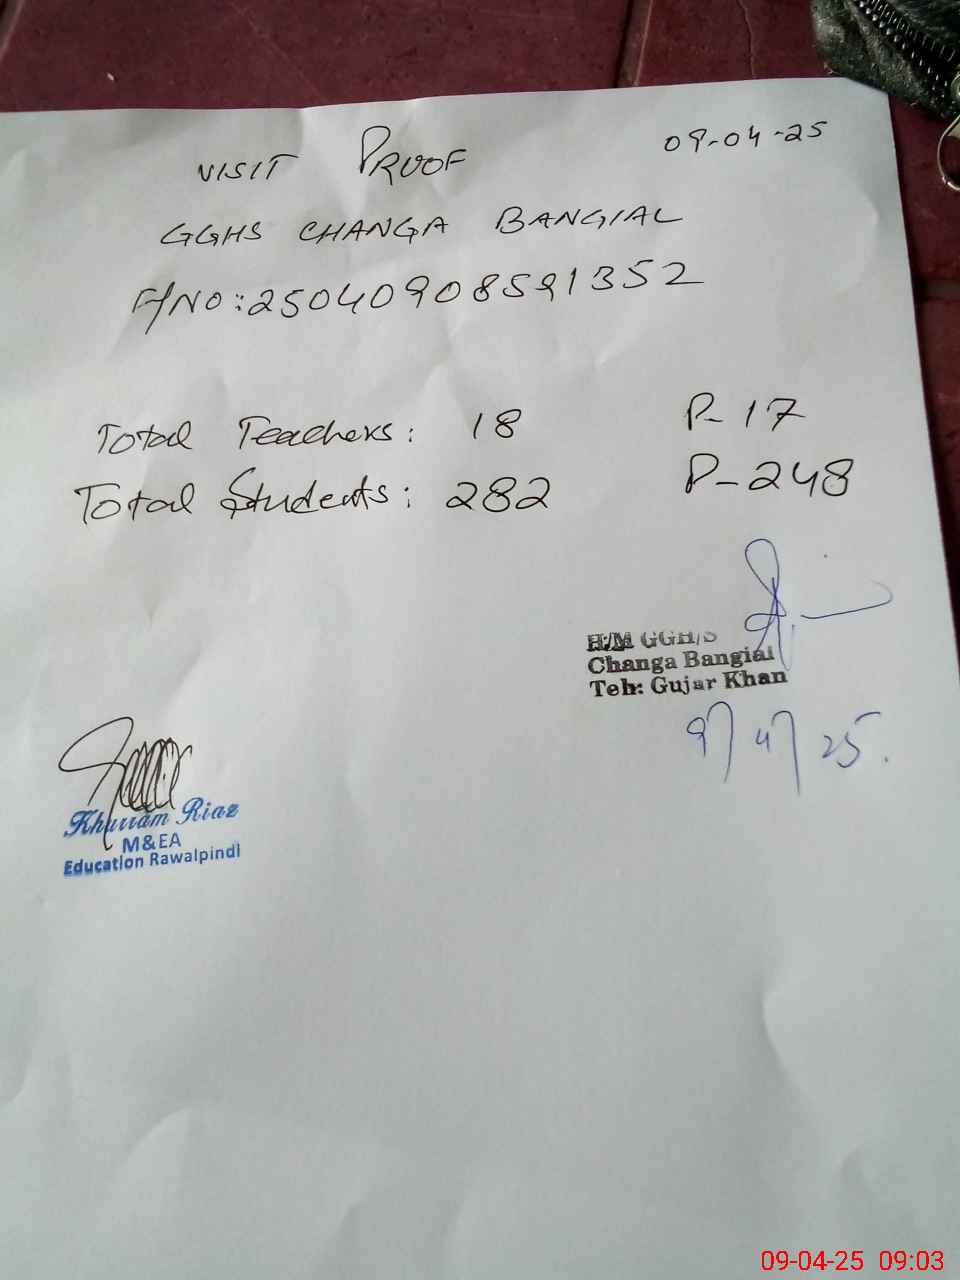 VISIT PROOF 09-04-25
GGHS CHANGA BANGIAL
F/NO:25040908591352
Total Teachers: 18 P-17
Total Students: 282 P-248
H/M GGH/S
Changa Bangial
Teh: Gujar Khan
9/4/25.
Khurram Riaz
M&EA
Education Rawalpindi
09-04-25 09:03